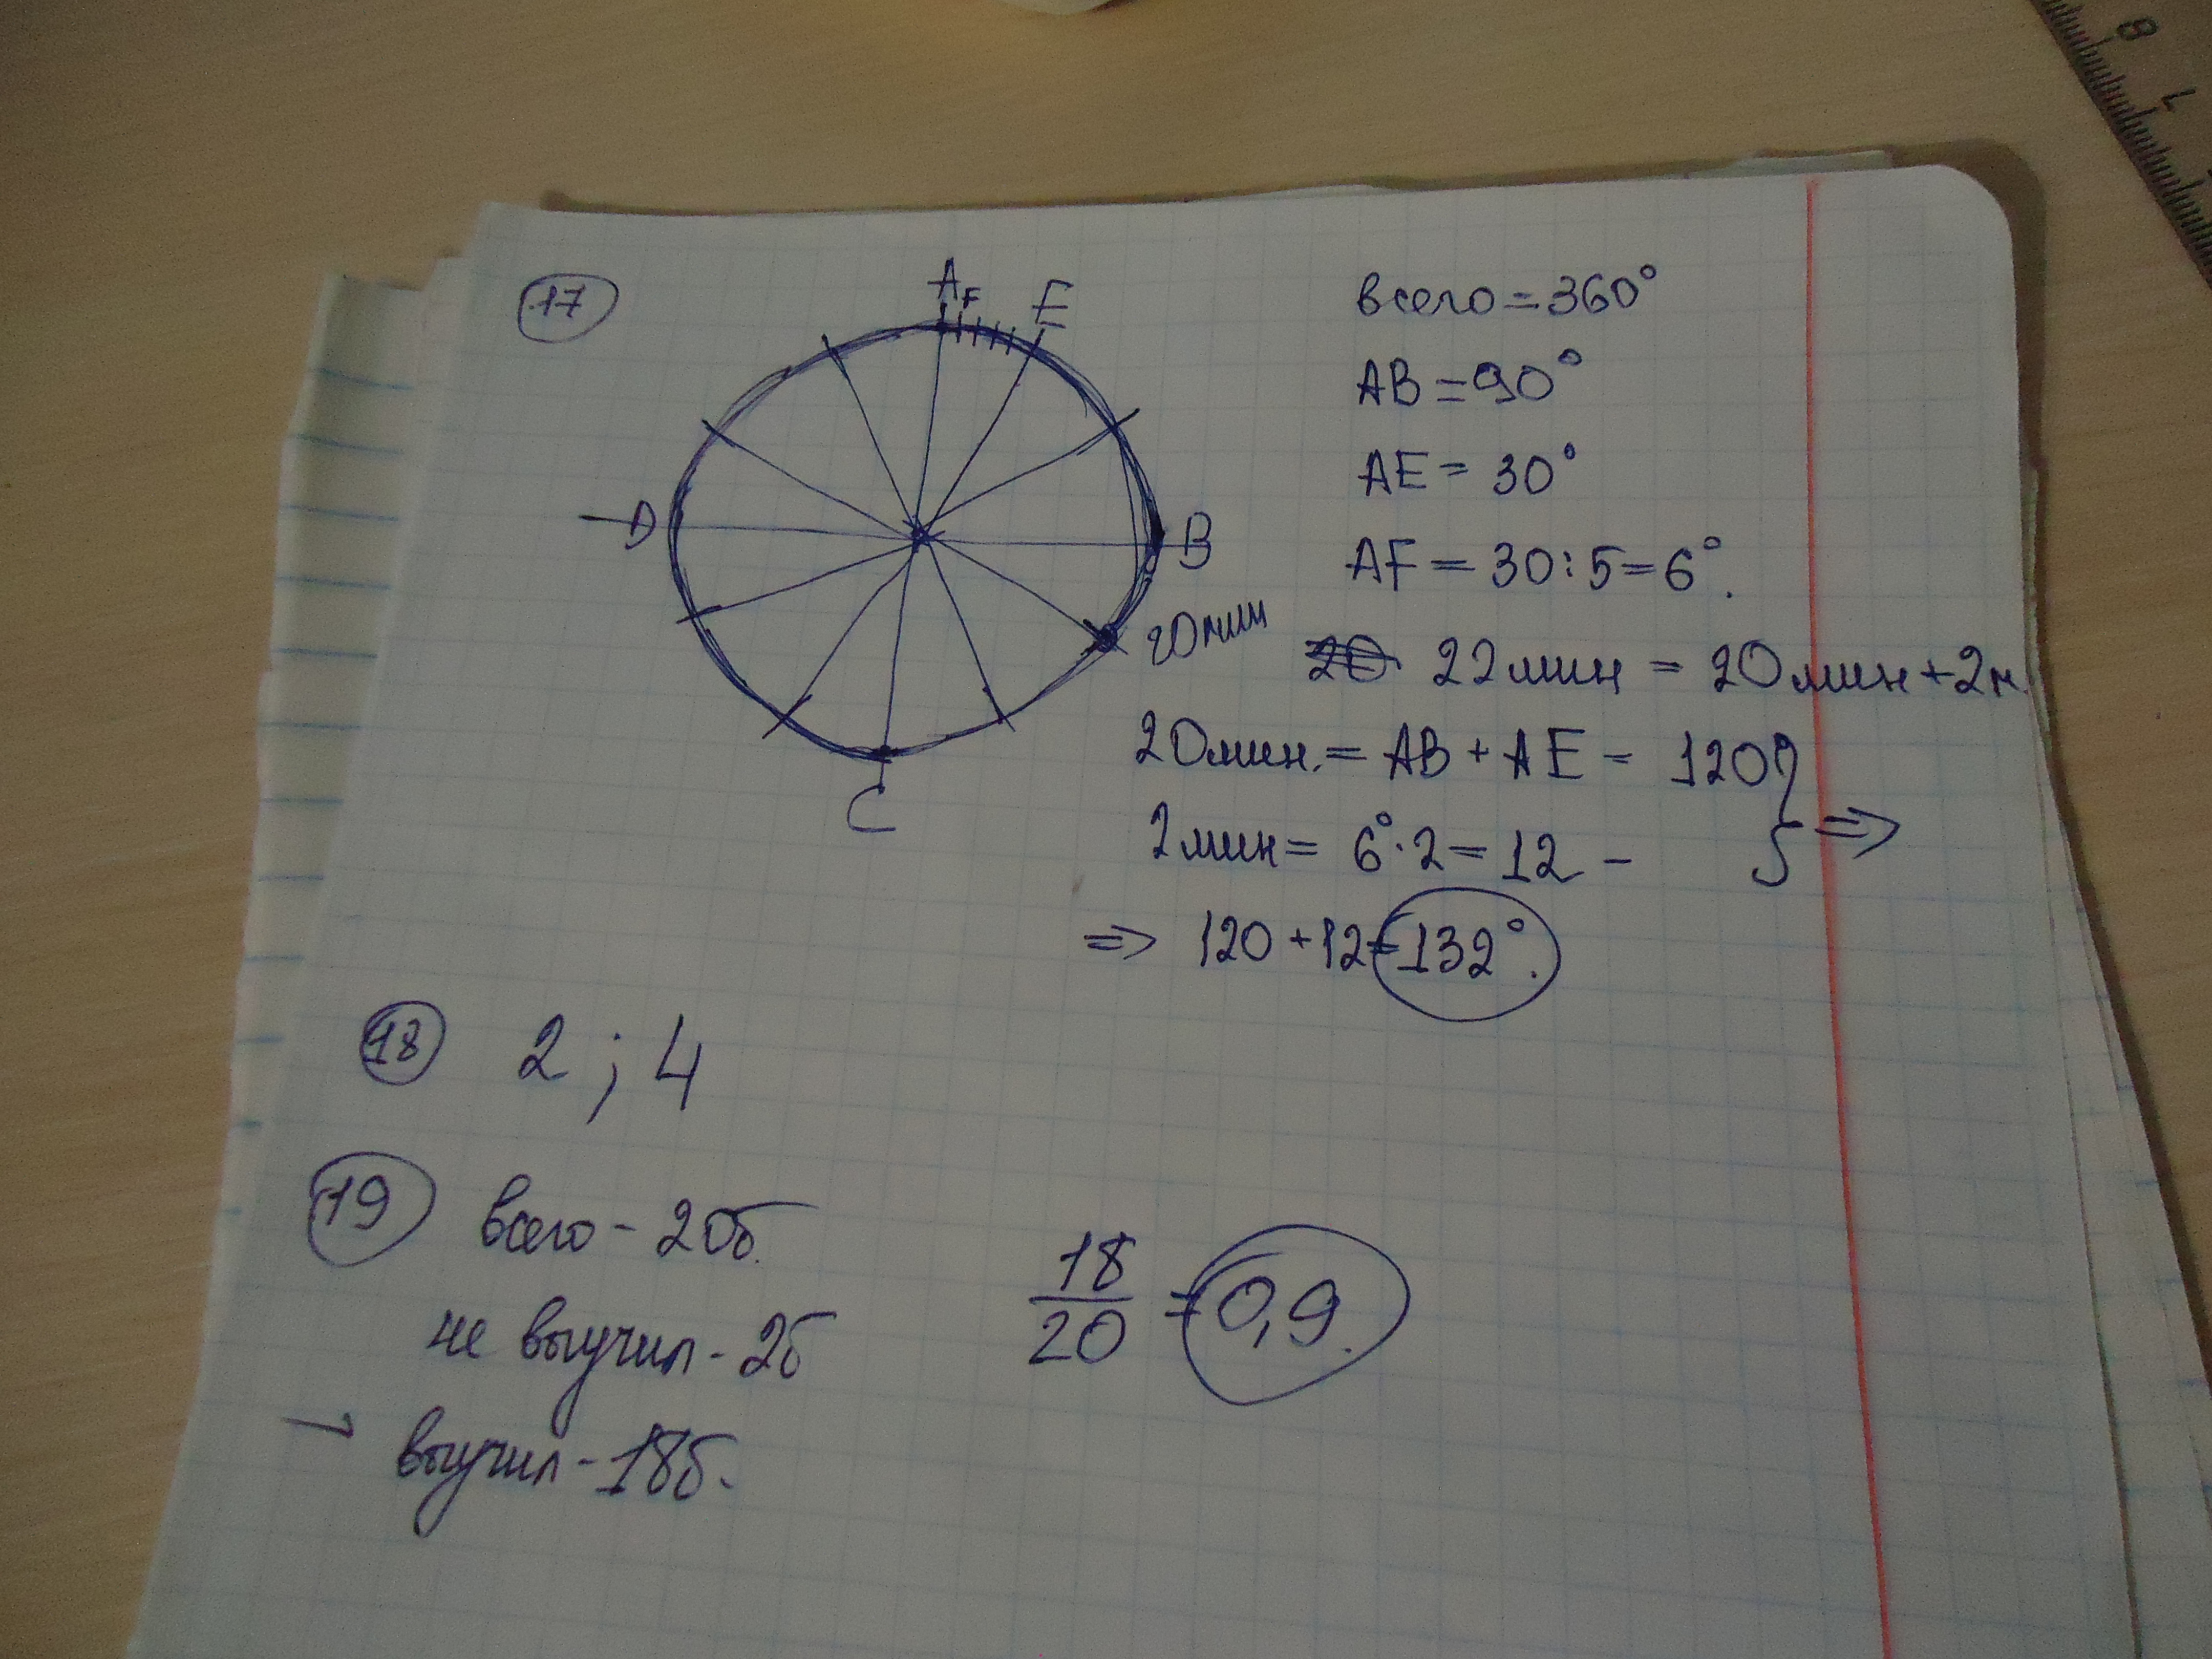 17
A F E
D
B
20 мин
C
всего = 360°
AB = 90°
AE = 30°
AF = 30:5 = 6°.
20 22 мин = 20 мин + 2 м
20 мин. = AB + AE - 120
2 мин = 6°·2 = 12 -
} ⇒
⇒ 120 + 12 = 132°.
18 2 ; 4
19 всего - 20б.
не выучил - 2б
выучил - 18б.
18
20
= 0,9.
8
7